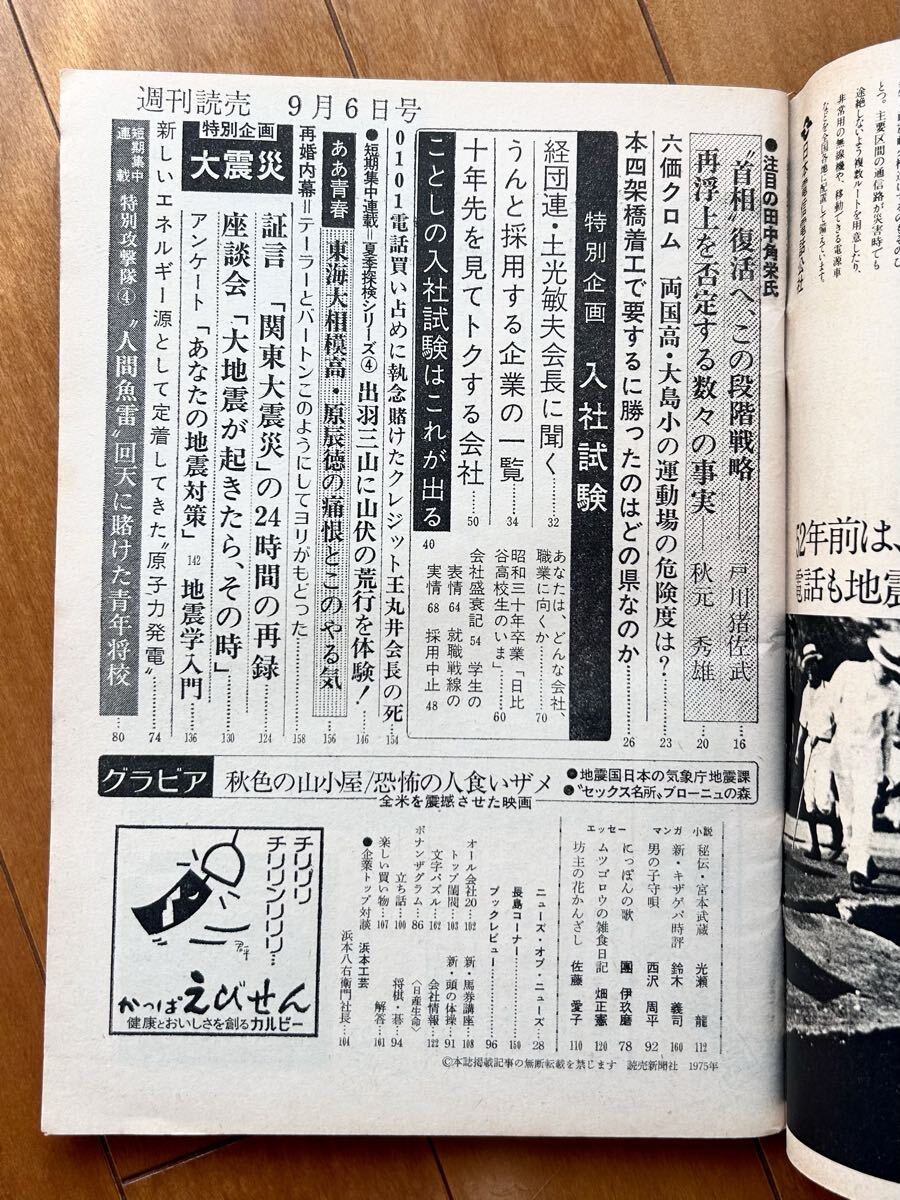 週刊読売　9月6日号
●注目の田中角栄氏
〝首相〟復活へ、この段階戦略──戸川猪佐武……16
再浮上を否定する数々の事実──秋元　秀雄……20
六価クロム　両国高・大島小の運動場の危険度は?……23
本四架橋着工で要するに勝ったのはどの県なのか……26
特別企画　入社試験
経団連・土光敏夫会長に聞く……32
うんと採用する企業の一覧……34
十年先を見てトクする会社……50
ことしの入社試験はこれが出る 40
あなたは、どんな会社、
職業に向くか……70
昭和三十年卒業「日比
谷高校生のいま」……60
会社盛衰記 54　学生の
表情 64　就職戦線の
実情 68　採用中止 48
0101電話買い占めに執念賭けたクレジット王丸井会長の死……154
●短期集中連載=夏季探検シリーズ④ 出羽三山に山伏の荒行を体験!……146
ああ青春 東海大相模高・原辰徳の痛恨とこのやる気……156
再婚内幕=テーラーとバートンこのようにしてヨリがもどった……158
特別企画
大震災
証言「関東大震災」の24時間の再録……124
座談会「大地震が起きたら、その時」……130
アンケート「あなたの地震対策」142　地震学入門……136
新しいエネルギー源として定着してきた〝原子力発電〟……74
短期集中
連載 特別攻撃隊④ 〝人間魚雷〟回天に賭けた青年将校……80
グラビア
秋色の山小屋/恐怖の人食いザメ
全米を震撼させた映画
●地震国日本の気象庁地震課
●〝セックス名所〟ブローニュの森
小説
秘伝・宮本武蔵　光瀬　龍 112
マンガ
新・キザゲバ時評　鈴木　義司 160
男の子守唄　西沢　周平 92
エッセー
にっぽんの歌　團　伊玖磨 78
ムツゴロウの雑食日記　畑正憲 120
坊主の花かんざし　佐藤　愛子 110
ニューズ・オブ・ニューズ……28
長島コーナー……150
ブックレビュー……96
オール会社20……102　新・馬券講座……108
トップ閨閥……103　新・頭の体操……91
文字パズル……162　会社情報……122
ボナンザグラム……86　〈日産生命〉
立ち話……100　将棋・碁……94
楽しい買い物……107　解答……161
●企業トップ対談　浜本工芸　浜本八右衛門社長……104
©本誌掲載記事の無断転載を禁じます　読売新聞社　1975年
チリプリ
チリリンリリリ…
かっぱえびせん
健康とおいしさを創るカルビー
とつ。主要区間の通信路が災害時でも
途絶しないよう複数ルートを用意したり、
非常用の無線機や、移動できる電源車
などを全国各地に配置して備えています
日本電信電話公社
52年前は、
電話も地震